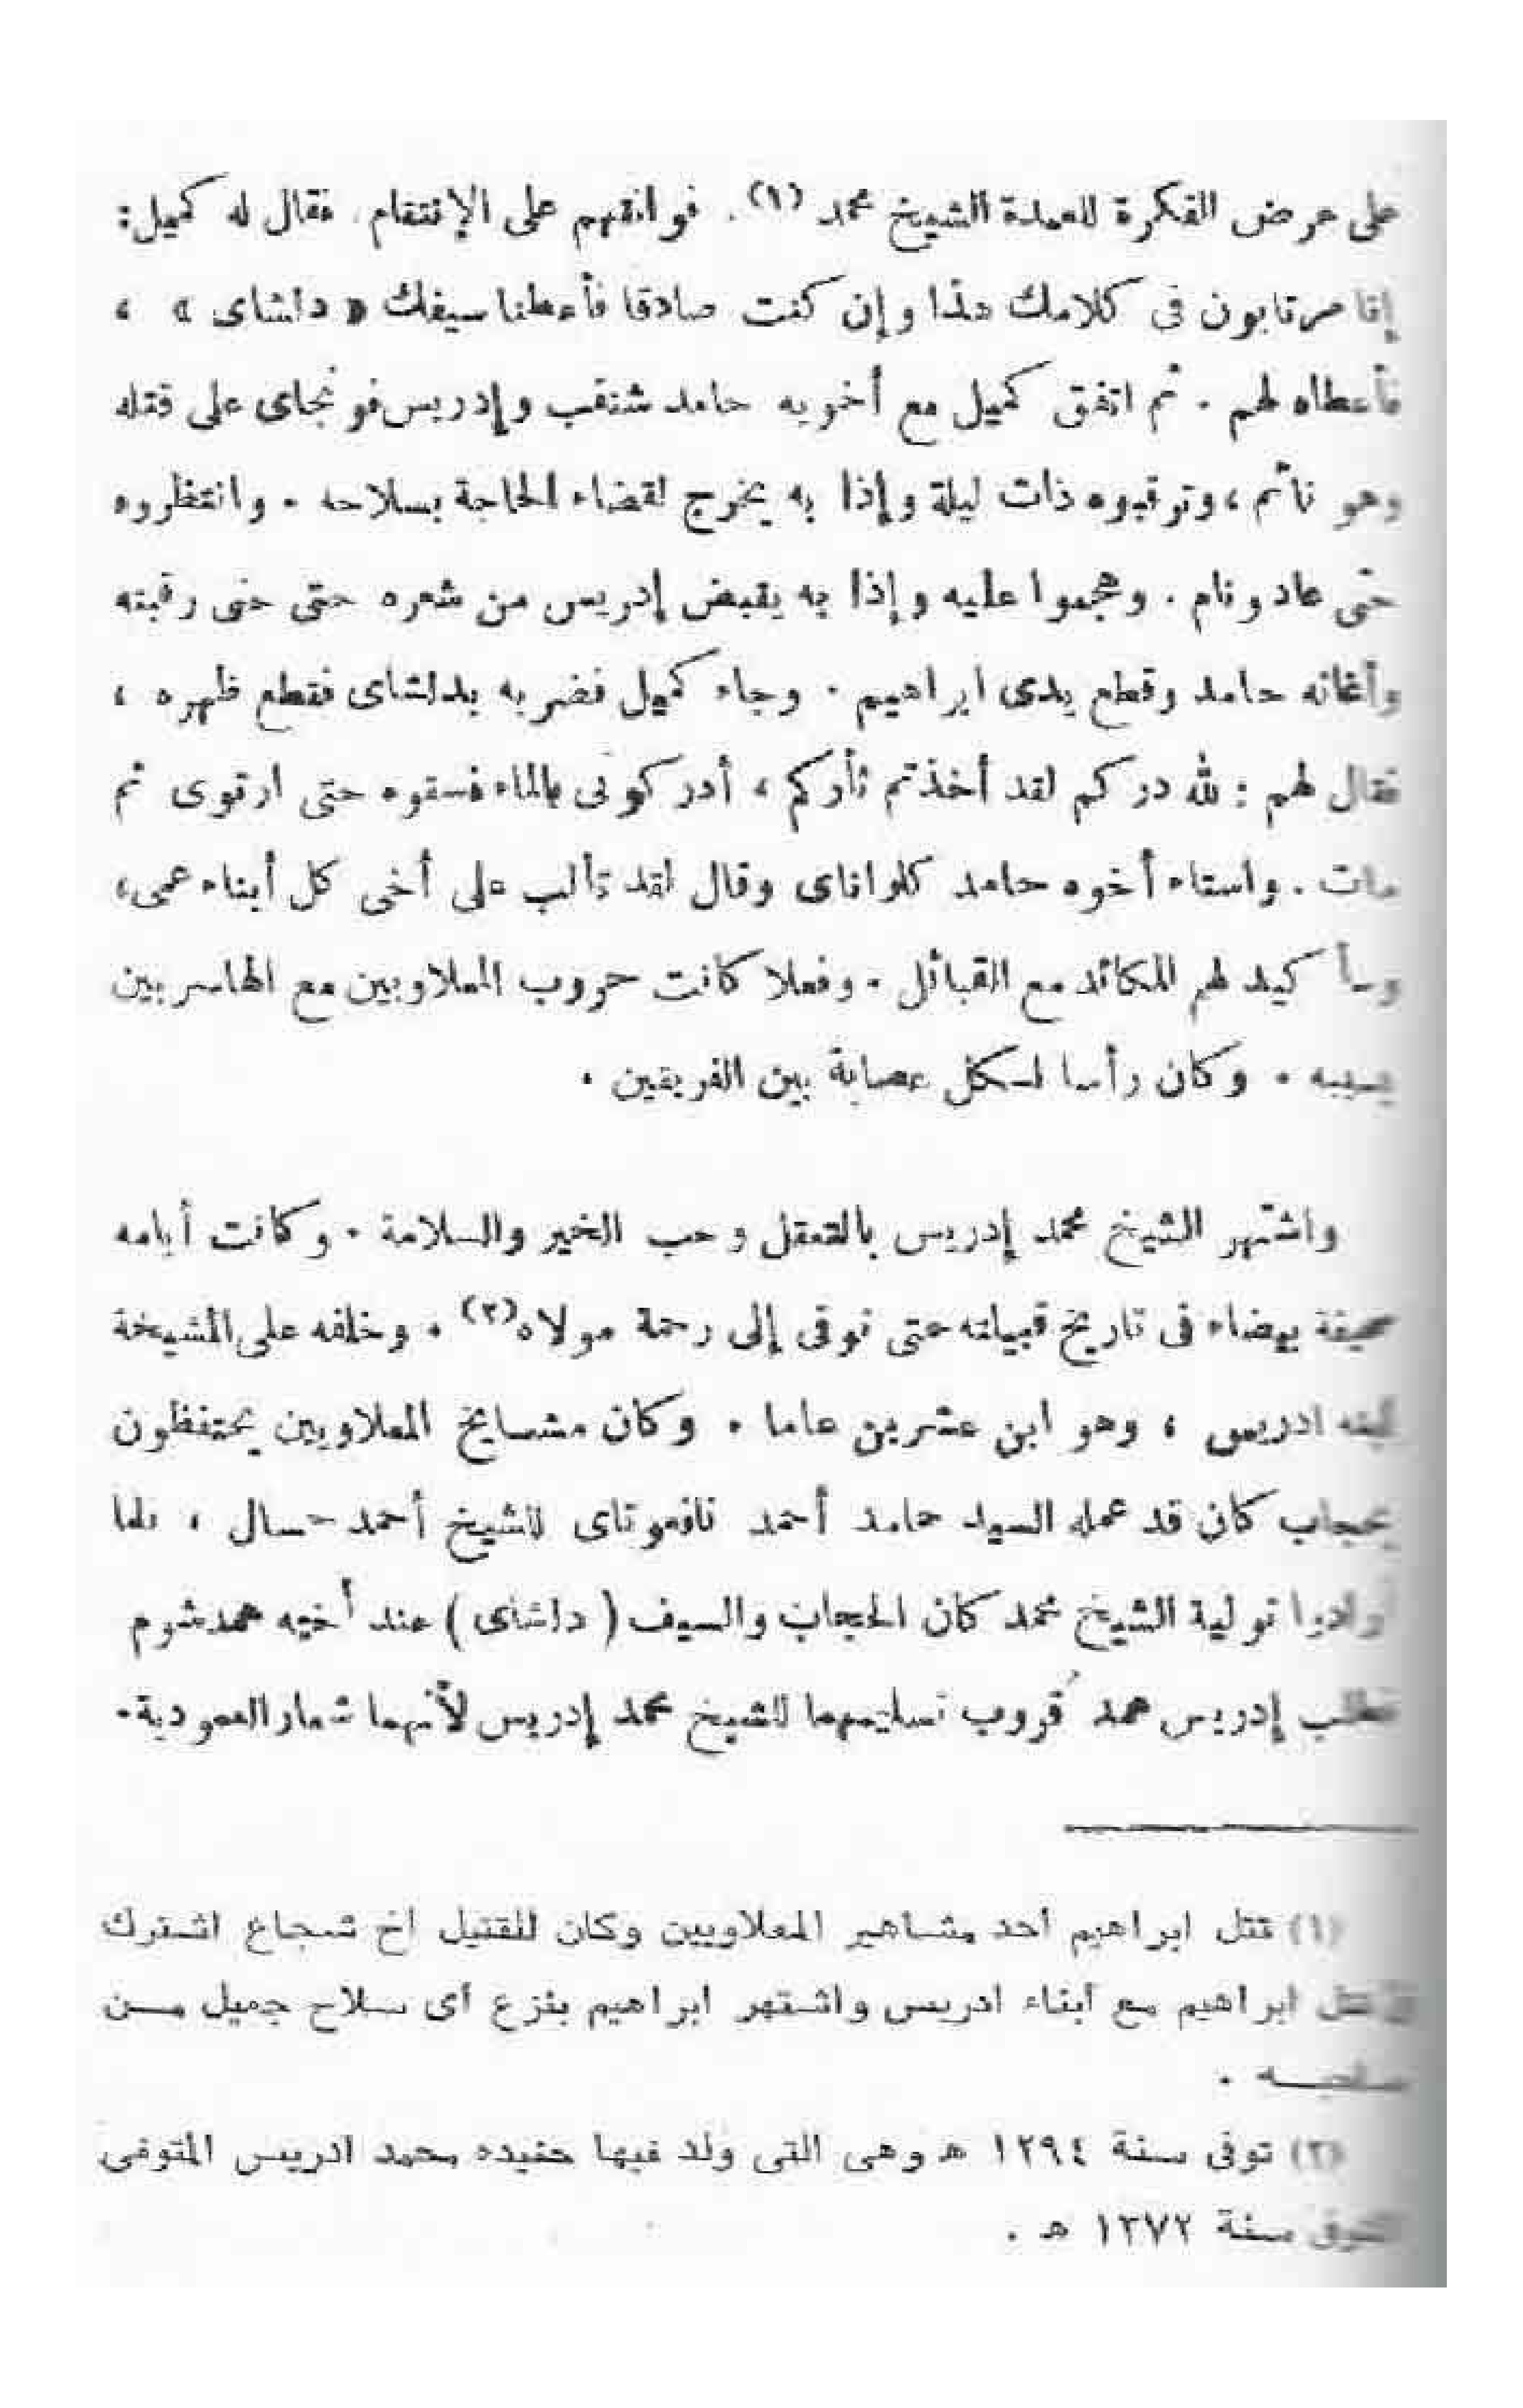 على عرض الفكرة للعمدة الشيخ محمد (١) . فوافقهم على الإنتقام . فقال له كميل :
إنا مرتابون فى كلامك هذا وإن كنت صادقا فأعطنا سيفك « داشاى » ،
فأعطاه لهم . ثم اتفق كميل مع أخويه حامد شنقب وإدريس فونجاى على قتله
وهو نائم ، وترقبوه ذات ليلة وإذا به يخرج لقضاء الحاجة بسلاحه . وانتظروه
حتى عاد ونام . وهجموا عليه وإذا به يقبض إدريس من شعره حتى حنى رقبته
وأغاثه حامد وقطع يدى ابراهيم . وجاء كميل فضربه بدلشاى فقطع ظهره ،
فقال لهم : لله دركم لقد أخذتم ثأركم ، أدركونى بالماء فسقوه حتى ارتوى ثم
مات . واستاء أخوه حامد كلواناى وقال لقد تألب على أخى كل أبناء عمى ،
وسأكيد لهم المكائد مع القبائل . وفعلا كانت حروب المعلاويين مع الهاسريين
بسببه . وكان رأسا لكل عصابة بين الفريقين .
واشتهر الشيخ محمد إدريس بالتعقل وحب الخير والسلامة . وكانت أيامه
صحيفة بيضاء فى تاريخ قبيلته حتى توفى إلى رحمة مولاه (٢) . وخلفه على المشيخة
ابنه ادريس ، وهو ابن عشرين عاما . وكان مشايخ المعلاويين يحتفظون
بحجاب كان قد عمله السيد حامد أحمد نافعوتاى للشيخ أحمد حسال ، فلما
أرادوا تولية الشيخ محمد كان الحجاب والسيف ( داشاى ) عند أخيه همدشوم
فطلب إدريس همد قروب تسليمهما للشيخ محمد إدريس لأنهما شعار العمودية .
(١) قتل ابراهيم أحد مشاهير المعلاويين وكان للقتيل أخ شجاع اشترك
فى قتل ابراهيم مع أبناء ادريس واشتهر ابراهيم بنزع أى سلاح جميل من
صاحبه .
(٢) توفى سنة ١٢٩٤ هـ وهى التى ولد فيها حفيده محمد ادريس المتوفى
المتوفى سنة ١٣٧٢ هـ .